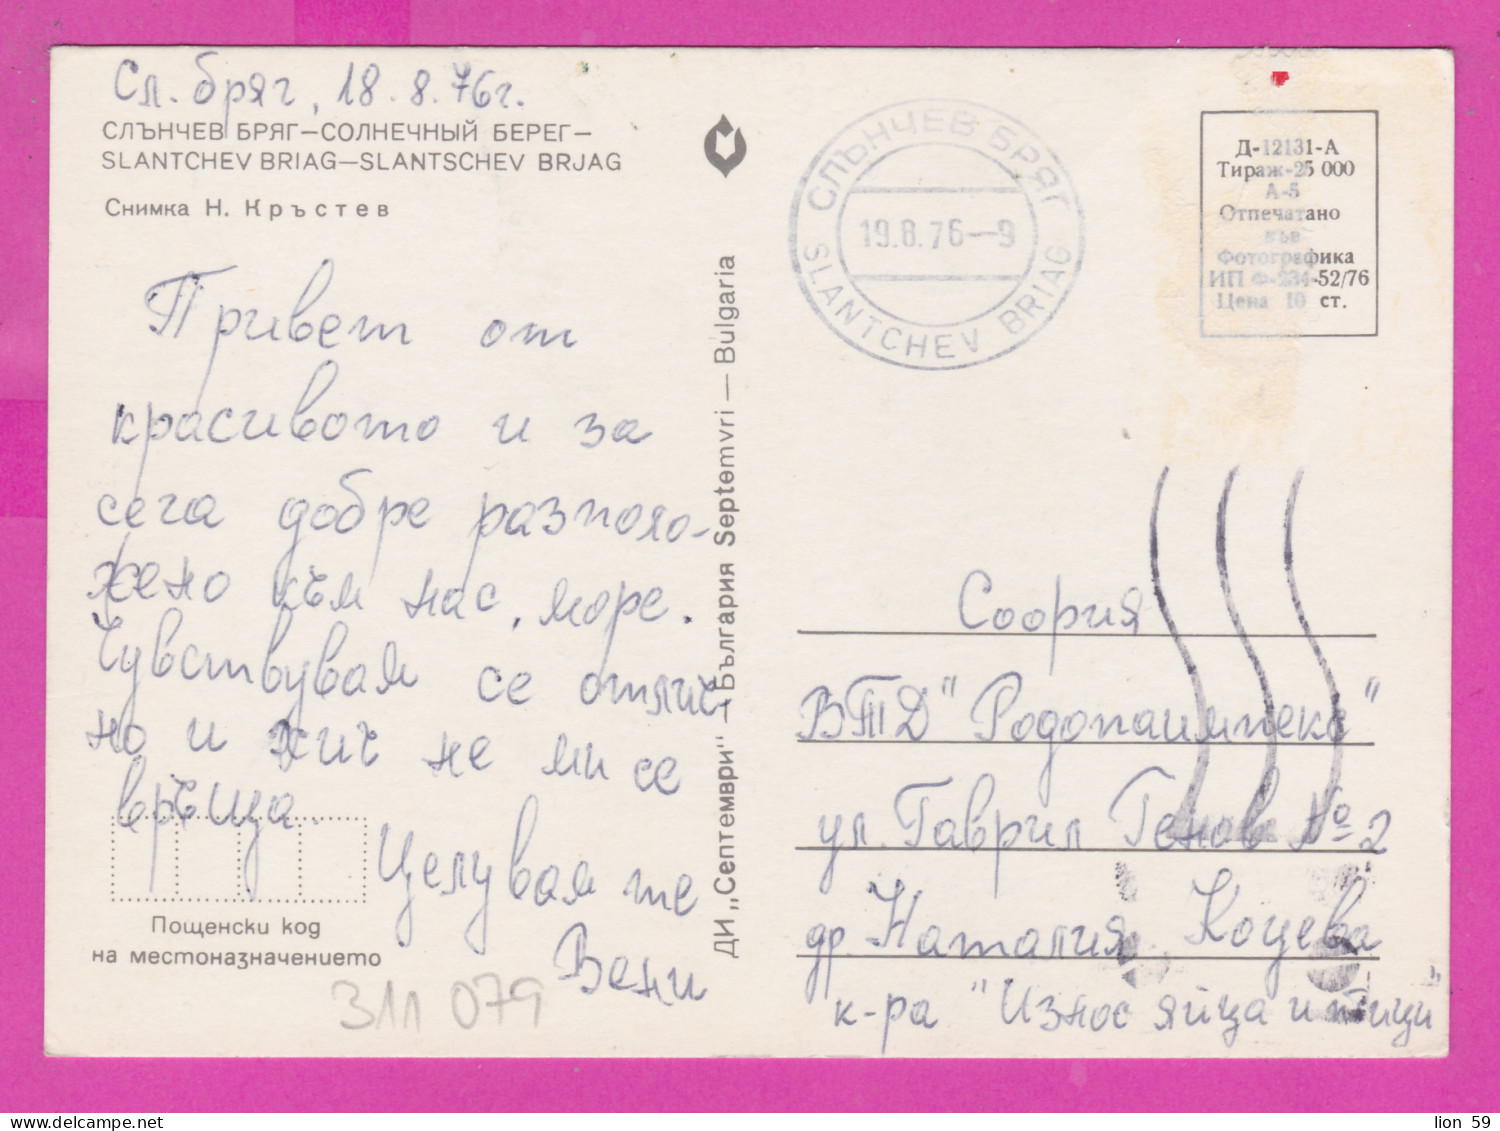 Сл. бряг, 18.8.76г.
СЛЪНЧЕВ БРЯГ—СОЛНЕЧНЫЙ БЕРЕГ—
SLANTCHEV BRIAG—SLANTSCHEV BRJAG
Снимка Н. Кръстев
Привет от
красивото и за
сега добре разполо-
жено към нас, море.
Чувствувам се отлич-
но и хич не ми се
връща.
Целувам те
Вени
Пощенски код
на местоназначението
311 079
ДИ „Септември" — България Septemvri — Bulgaria
СЛЪНЧЕВ БРЯГ
19.8.76—9
SLANTCHEV BRIAG
Д-12131-А
Тираж-25 000
А-5
Отпечатано
във
Фотографика
ИП Ф-234-52/76
Цена 10 ст.
София
ВТД "Родопаимпекс"
ул. Гаврил Генов № 2
др. Наталия Коцева
к-ра "Износ яйца и птици"
lion 59